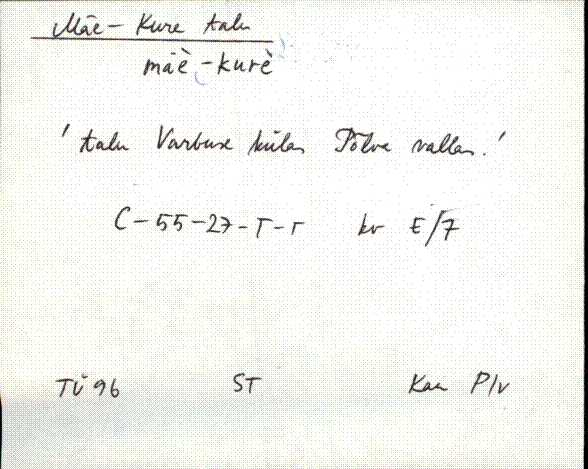 Mäe-Kure talu
mäè-kurè
'talu Varbuse külas Põlva vallas.'
C-55-27-T-T kv E/7
TÜ 96 ST Kan Plv